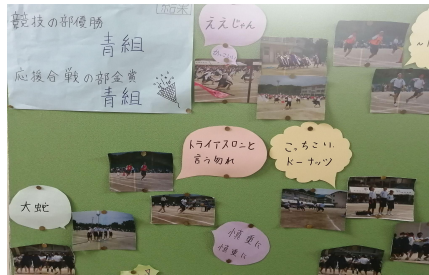 競技の部優勝
青組
応援合戦の部金賞
青組
ええじゃん
トライアスロンと
言う勿れ
こっちこい
ドーナッツ
大蛇
慎重に
慎重に